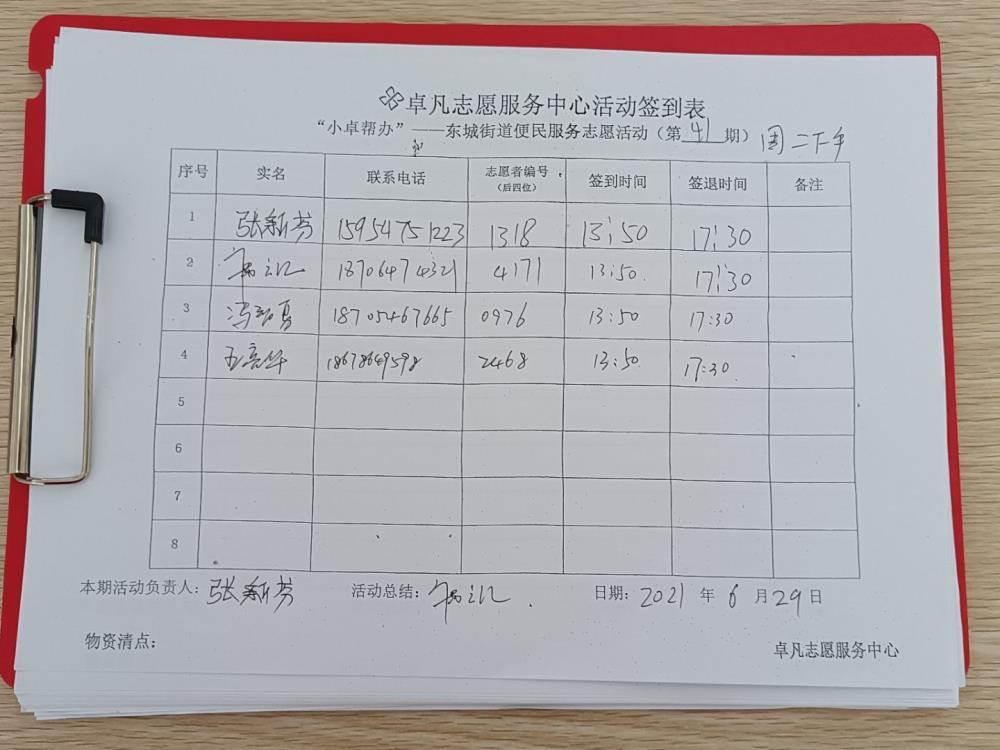 卓凡志愿服务中心活动签到表
“小卓帮办”——东城街道便民服务志愿活动（第 41 期） 周二下午
序号 实名 联系电话 志愿者编号（后四位） 签到时间 签退时间 备注
1 张新芳 15954751223 1318 13:50 17:30
2 18706474321 4171 13:50 17:30
3 18705467665 0976 13:50 17:30
4 18678649598 2468 13:50 17:30
5
6
7
8
本期活动负责人：张新芳 活动总结： 日期：2021 年 6 月 29 日
物资清点：
卓凡志愿服务中心